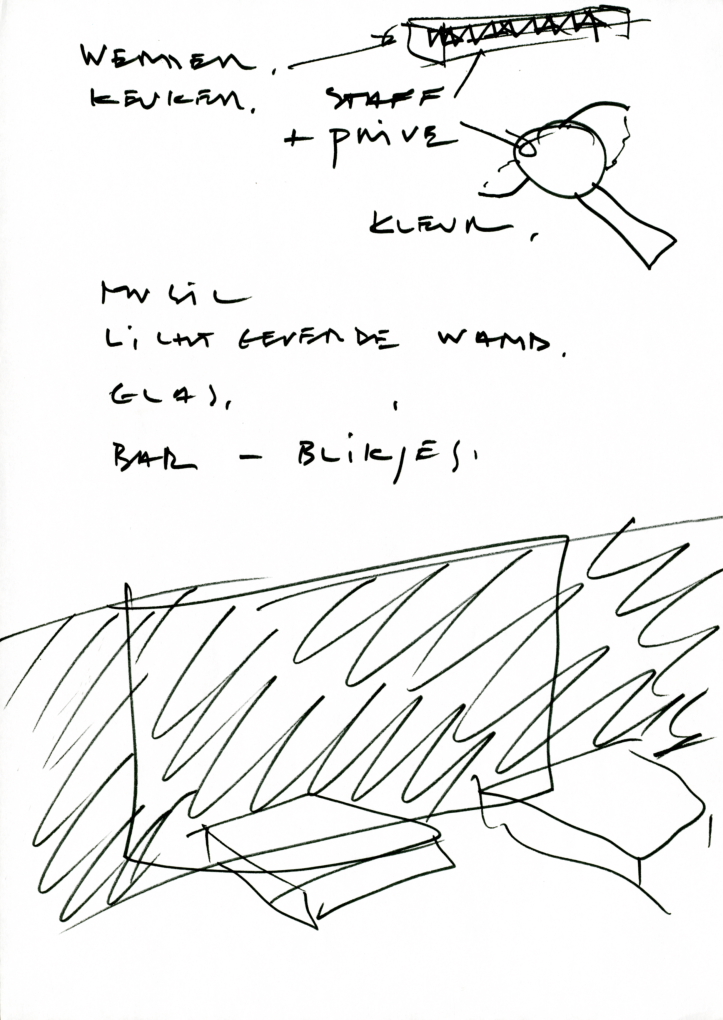 WERKEN.
KEUKEN. STAFF
+ PRIVE
KLEUR.
LICHT GEVENDE WAND.
GLAS.
BAR - BLIKJES.